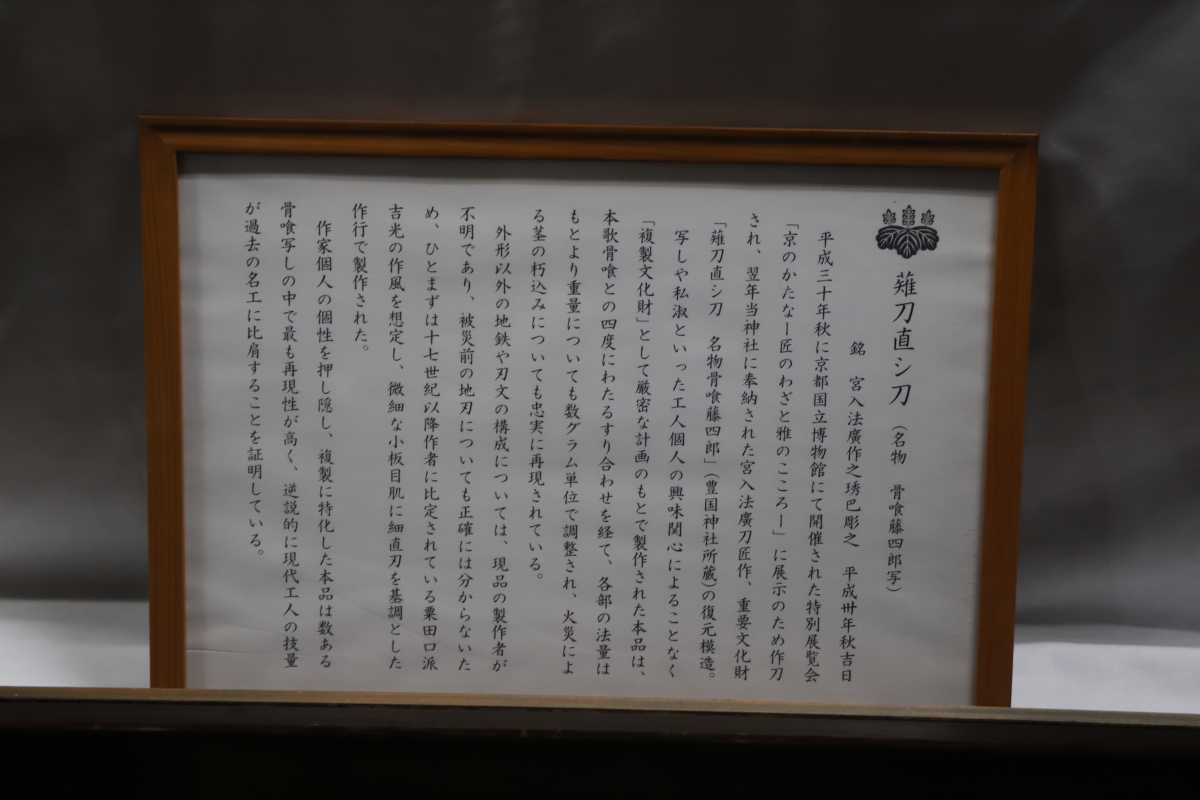 薙刀直シ刀　（名物　骨喰藤四郎写）
銘　宮入法廣作之琇巴彫之　平成卅年秋吉日
平成三十年秋に京都国立博物館にて開催された特別展覧会
「京のかたなー匠のわざと雅のこころー」に展示のため作刀
され、翌年当神社に奉納された宮入法廣刀匠作、重要文化財
「薙刀直シ刀　名物骨喰藤四郎」（豊国神社所蔵）の復元模造。
写しや私淑といった工人個人の興味関心によることなく
「複製文化財」として厳密な計画のもとで製作された本品は、
本歌骨喰との四度にわたるすり合わせを経て、各部の法量は
もとより重量についても数グラム単位で調整され、火災によ
る茎の朽込みについても忠実に再現されている。
外形以外の地鉄や刃文の構成については、現品の製作者が
不明であり、被災前の地刃についても正確には分からないた
め、ひとまずは十七世紀以降作者に比定されている粟田口派
吉光の作風を想定し、微細な小板目肌に細直刃を基調とした
作行で製作された。
作家個人の個性を押し隠し、複製に特化した本品は数ある
骨喰写しの中で最も再現性が高く、逆説的に現代工人の技量
が過去の名工に比肩することを証明している。